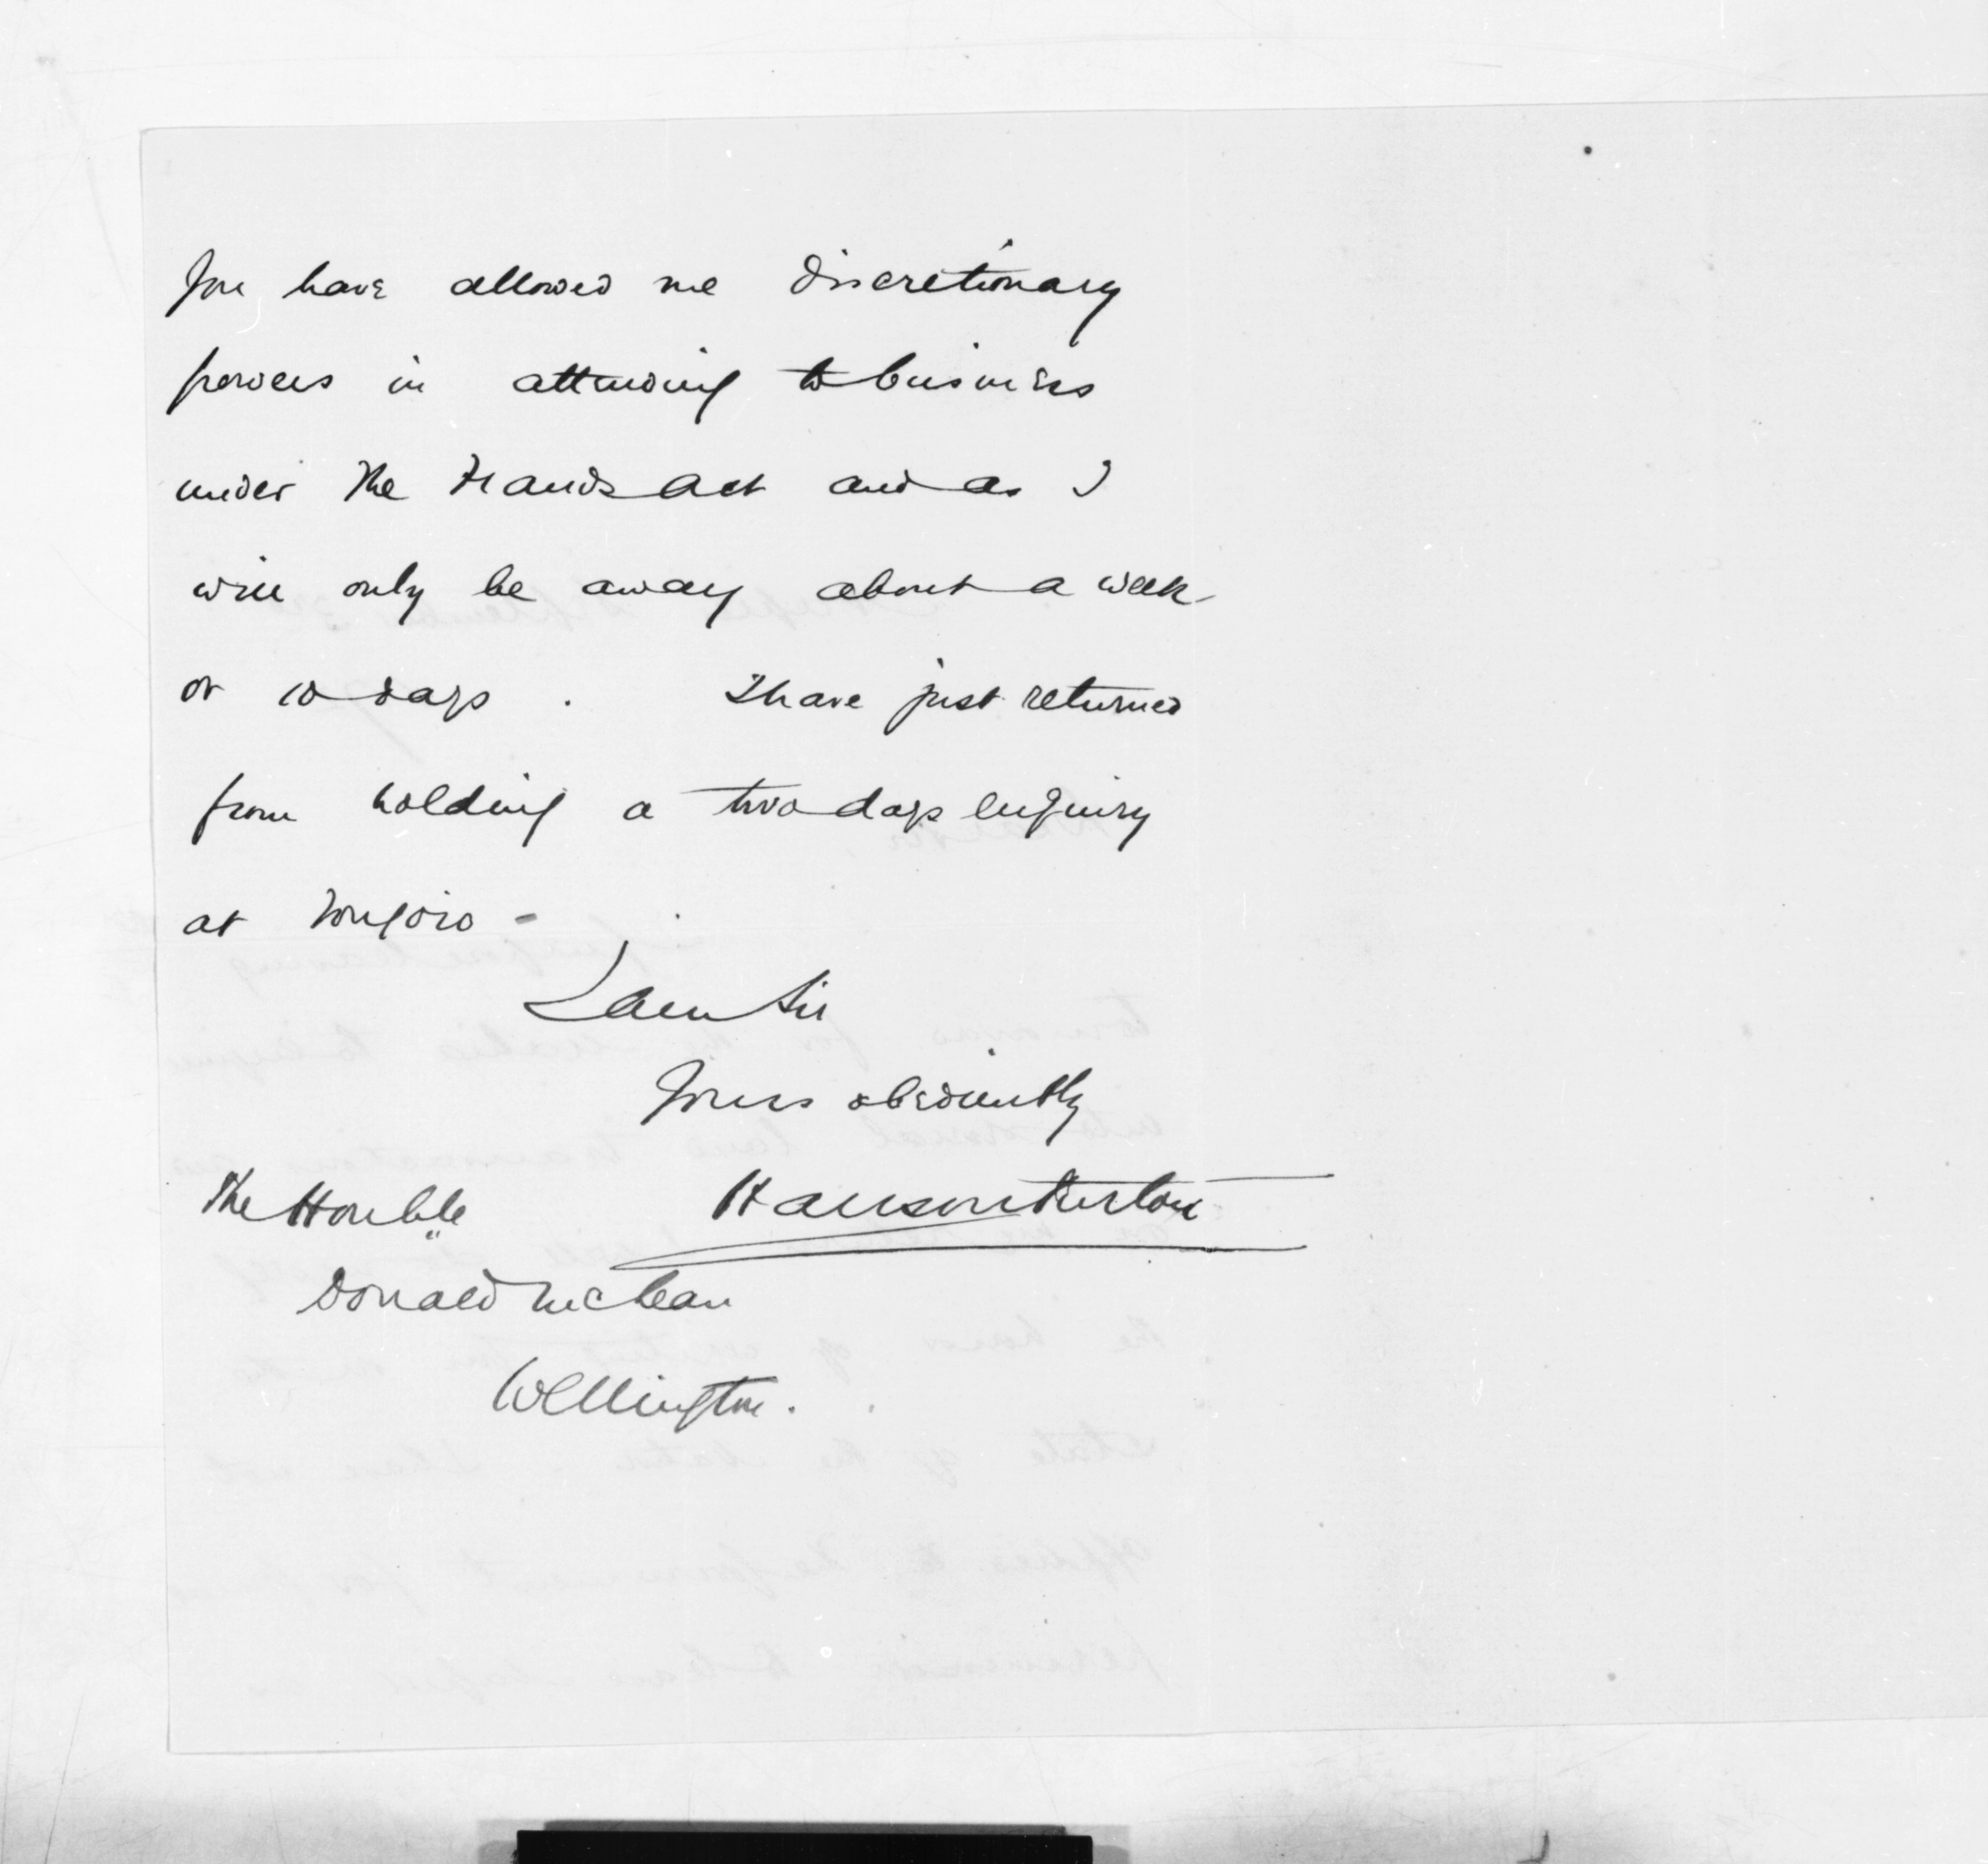 You have allowed me discretionary
powers in attending to business
under the Frauds act and as I
will only be away about a week
or 10 days . I have just returned
from holding a two days enquiry
at Tongoio -
I am Sir
Yours obediently
The Honble Hanson Turton
Donald McLean
Wellington.